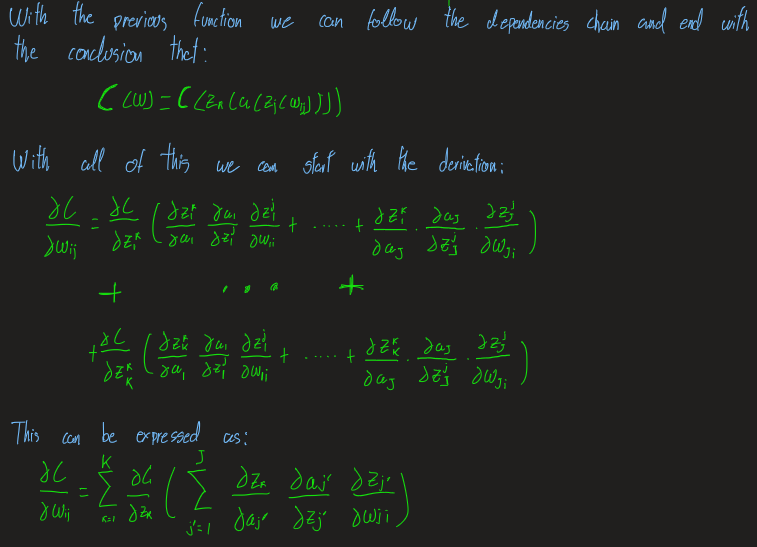 With the previous function we can follow the dependencies chain and end with
the conclusion that:
C(w) = C(z_k(a(z_j(w_ij))))
With all of this we can start with the derivation:
∂C/∂w_ij = ∂C/∂z_1^k ( ∂z_1^k/∂a_1 ∂a_1/∂z_1^j ∂z_1^j/∂w_1i + ..... + ∂z_1^k/∂a_J · ∂a_J/∂z_J^j · ∂z_J^j/∂w_Ji )
+ ... +
+ ∂C/∂z_K^k ( ∂z_K^k/∂a_1 ∂a_1/∂z_1^j ∂z_1^j/∂w_1i + ..... + ∂z_K^k/∂a_J · ∂a_J/∂z_J^j · ∂z_J^j/∂w_Ji )
This can be expressed as:
∂C/∂w_ij = ∑_{k=1}^{K} ∂C/∂z_k ( ∑_{j'=1}^{J} ∂z_k/∂a_j' ∂a_j'/∂z_j' ∂z_j'/∂w_ji )